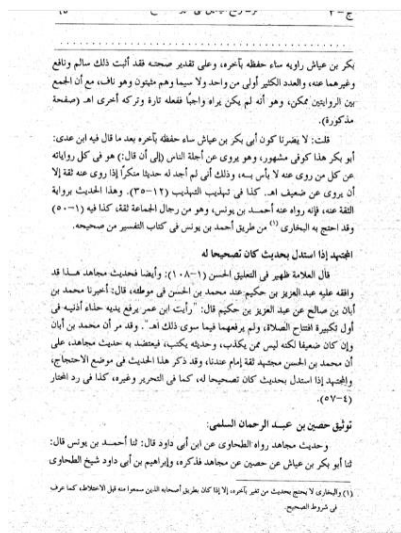 ج-٣
بكر بن عياش راويه ساء حفظه بآخره، وعلى تقدير صحته فقد أثبت ذلك سالم ونافع
وغيرهما عنه، والعدد الكثير أولى من واحد ولا سيما وهم مثبتون وهو ناف، مع أن الجمع
بين الروايتين ممكن، وهو أنه لم يكن يراه واجبًا ففعله تارة وتركه أخرى اهـ (صفحة
مذكورة).
قلت: لا يضرنا كون أبى بكر بن عياش ساء حفظه بآخره بعد ما قال فيه ابن عدى:
أبو بكر هذا كوفى مشهور، وهو يروى عن أجلة الناس (إلى أن قال:) هو فى كل رواياته
عن كل من روى عنه لا بأس بـه، وذلك أنى لم أجد له حديثا منكرًا إذا روى عنه ثقة إلا
أن يروى عن ضعيف اهـ. كذا فى تهذيب التهذيب (١٢-٣٥). وهذا الحديث برواية
الثقة عنه، فإنه رواه عنه أحمـد بن يونس، وهو من رجال الجماعة ثقة، كذا فيه (١-٥٠)
وقد احتج به البخارى (١) من طريق أحمد بن يونس فى كتاب التفسير من صحيحه.
المجتهد إذا استدل بحديث كان تصحيحا له
قال العلامة ظهير فى التعليق الحسن (١-١٠٨): وأيضا فحديث مجاهد هـذا قد
وافقه عليه عبد العزيز بن حكيم عند محمد بن الحسن فى موطئه، قال: أخبرنا محمد بن
أبان بن صالح عن عبد العزيز بن حكيم قال: "رأيت ابن عمر يرفع يديه حذاء أذنيـه فى
أول تكبيرة افتتاح الصلاة، ولم يرفعهما فيما سوى ذلك اهـ". وقد مر أن محمد بن أبان
وإن كان ضعيفا لكنه ليس ممن يكذب، وحديثه يكتب، فيعتضد به حديث مجاهد، على
أن محمد بن الحسن مجتهد ثقة إمام عندنا، وقد ذكر هذا الحديث فى موضع الاحتجاج،
والمجتهد إذا استدل بحديث كان تصحيحا له، كما فى التحرير وغيره، كذا فى رد المحتار
(٤-٥٧).
توثيق حصين بن عبـد الرحمان السلمى:
وحديث مجاهد رواه الطحاوى عن ابن أبى داود قال: ثنا أحمـد بن يونس قال:
ثنا أبو بكر بن عياش عن حصين عن مجاهد فذكره، وإبراهيم بن أبى داود شيخ الطحاوى
(١) والبخارى لا يحتج بحديث من تغير بآخره، إلا إذا كان بطريق أصحابه الذين سمعوا منه قبل الاختلاط، كما عرف
فى شروط الصحيح.